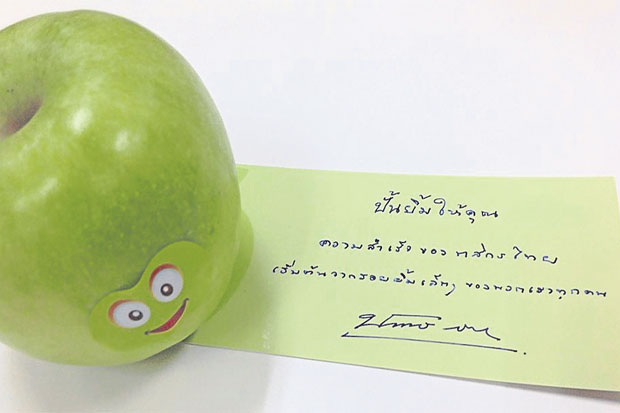 ปั้นยิ้มให้คุณ
ความสำเร็จ ของ กสิกรไทย
เริ่มต้นจากรอยยิ้มเล็กๆ ของพวกเราทุกคน